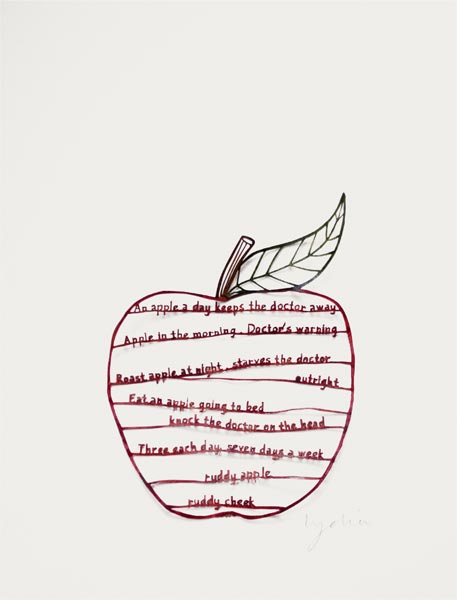 An apple a day keeps the doctor away
Apple in the morning. Doctor's warning
Roast apple at night, starves the doctor
outright
Eat an apple going to bed
knock the doctor on the head
Three each day, seven days a week
ruddy apple
ruddy cheek